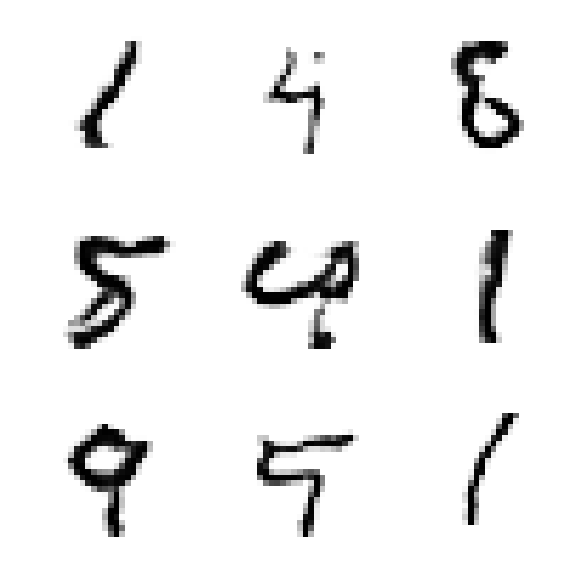 1 4 8
5 4 1
9 5 1